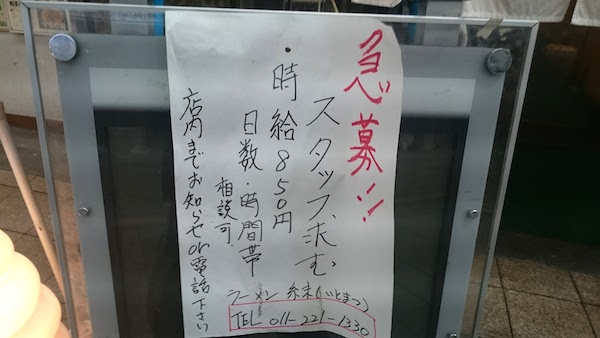 急募!!
スタッフ求む
・時給850円
日数・時間帯
相談可
店内までお知らせor電話下さい
ラーメン 糸末(いとまつ)
TEL 011-221-1330